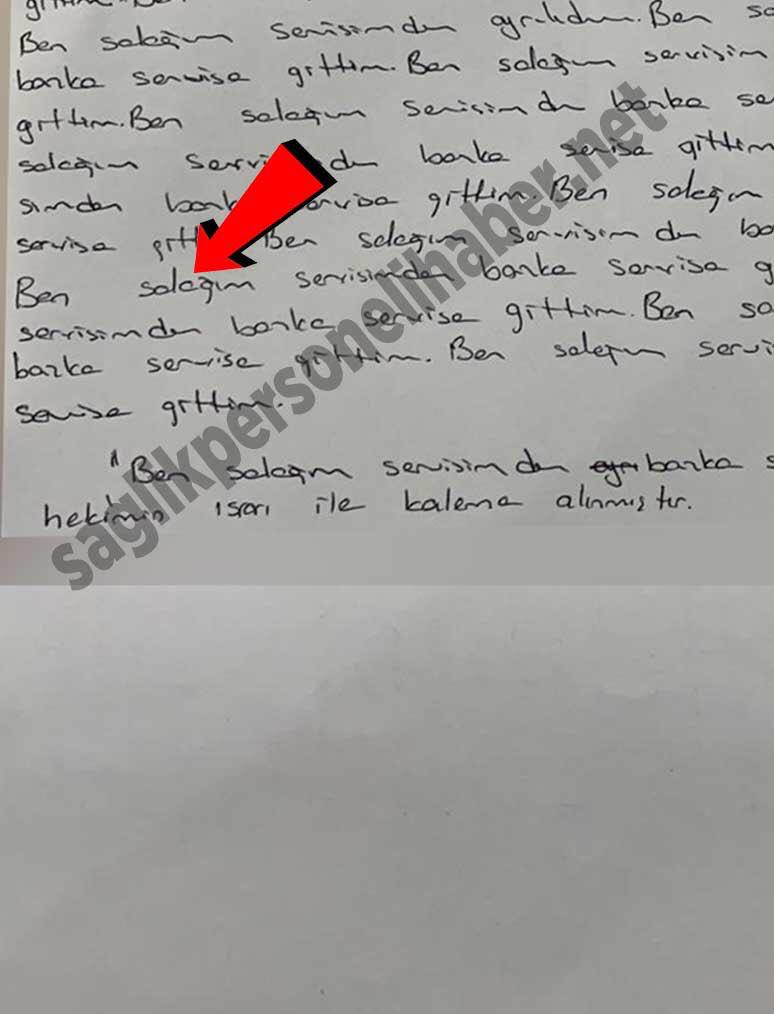 gittim. Be
Ben salağım servisimden ayrıldım. Ben sa
başka servise gittim. Ben salağım servisim
gittim. Ben salağım servisimden başka se
salağım servisimden başka servise gittim
simden başka servise gittim. Ben salağım
servise gittim. Ben salağım servisimden ba
Ben salağım servisimden başka servise g
servisimden başka servise gittim. Ben sa
başka servise gittim. Ben salağım servi
servise gittim.
"Ben salağım servisimden başka s
hekimin ısrarı ile kaleme alınmıştır.
saglikpersonelihaber.net